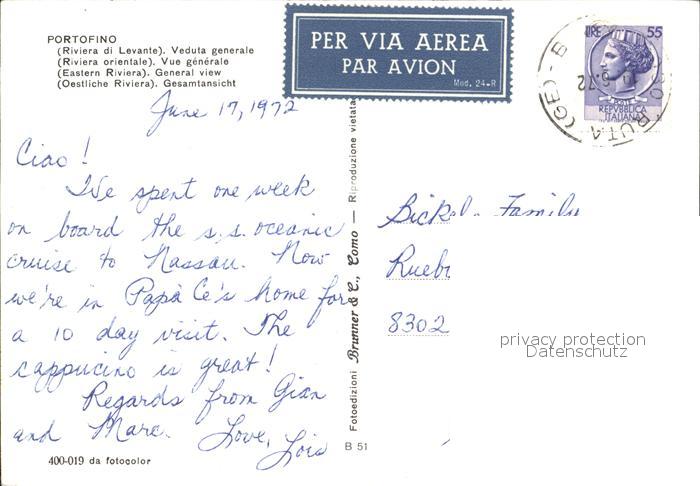 PORTOFINO
(Riviera di Levante). Veduta generale
(Riviera orientale). Vue générale
(Eastern Riviera). General view
(Oestliche Riviera). Gesamtansicht
PER VIA AEREA
PAR AVION
Mod. 24-R
LIRE 55
POSTE
REPVBBLICA
ITALIANA
RUTA (GE) - B
6.72
June 17, 1972
Ciao!
I've spent one week
on board the s.s. oceanic
cruise to Nassau. Now
we're in Papà Ce's home for
a 10 day visit. The
cappucino is great!
Regards from Gian
and Marc. Love, Lois
Fotoedizioni Brunner & C., Como — Riproduzione vietata
Bickel Family
8302
privacy protection
Datenschutz
B 51
400-019 da fotocolor